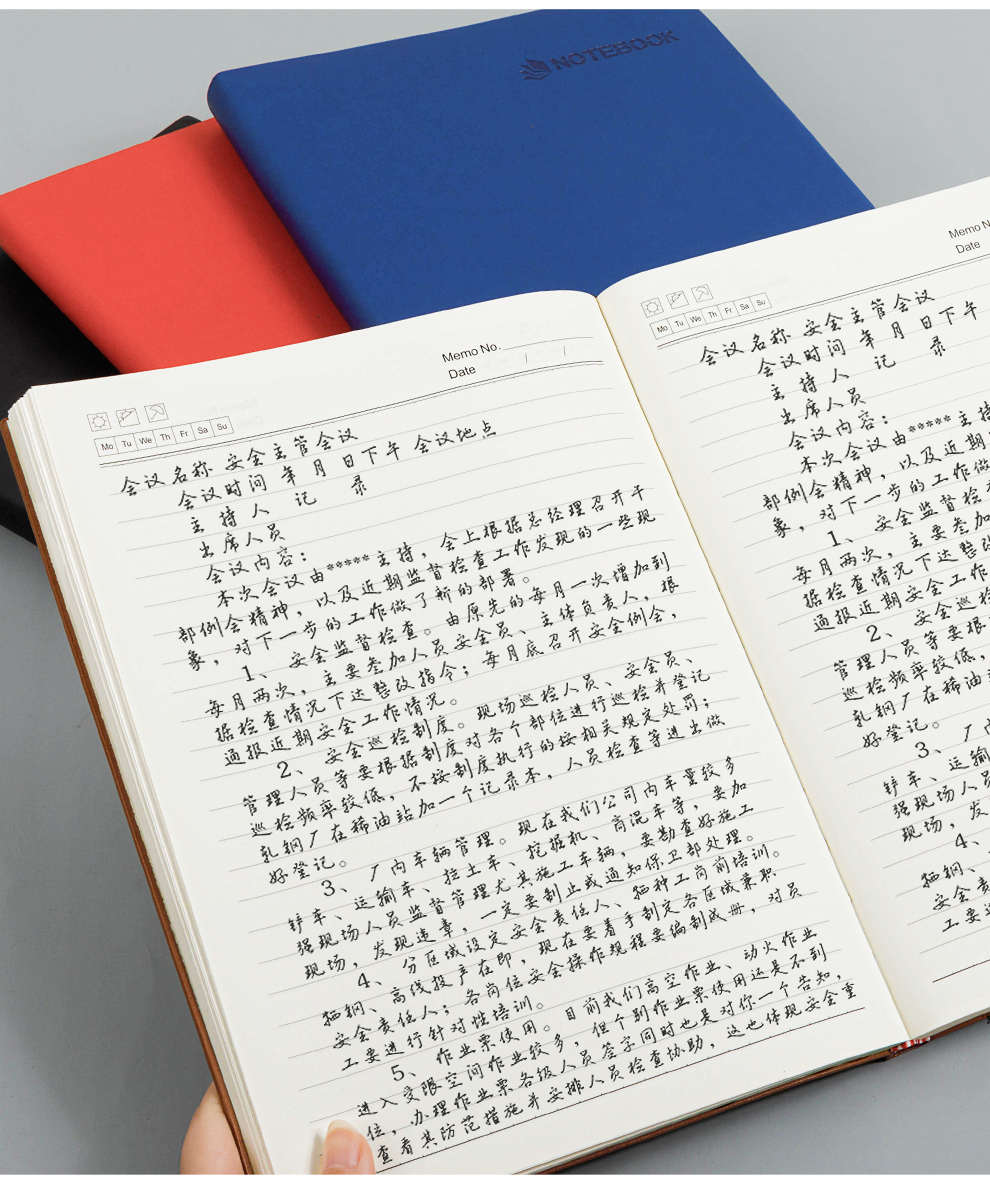 NOTEBOOK
Memo No.
Date / /
Mo Tu We Th Fr Sa Su
会议名称 安全主管会议
会议时间 年 月 日下午 会议地点
主 持 人 记 录
出席人员
会议内容：
本次会议由*****主持，会上根据总经理召开干
部例会精神，以及近期监督检查工作发现的一些现
象，对下一步的工作做了新的部署。
1、 安全监督检查。由原先的每月一次增加到
每月两次，主要参加人员安全员、主体负责人，根
据检查情况下达整改指令；每月底召开安全例会，
通报近期安全工作情况。
2、 安全巡检制度。现场巡检人员、安全员、
管理人员等要根据制度对各个部位进行巡检并登记
巡检频率较低，不按制度执行的按相关规定处罚；
轧钢厂在稀油站加一个记录本，人员检查等进出做
好登记。
3、 厂内车辆管理。现在我们公司内车量较多
铲车、运输车、拉土车、挖掘机、商混车等，要加
强现场人员监督管理尤其施工车辆，要勘查好施工
现场，发现违章，一定要制止或通知保卫部处理。
4、 分区域设定安全责任人、牺种工岗前培训。
牺钢、高线投产在即，现在要着手制定各区域兼职
安全责任人；各岗位安全操作规程要编制成册，对员
工要进行针对性培训。
5、 作业票使用。目前我们高空作业、动火作业
进入受限空间作业较多，但个别作业票使用还是不到
位，办理作业票各级人员签字同时也是对你一个告知，
查看其防范措施并安排人员检查协助，这也体现安全重
Memo N
Date
Mo Tu We Th Fr Sa Su
会议名称 安全主管会议
会议时间 年 月 日下午
主 持 人 记 录
出席人员
会议内容：
本次会议由*****主持
部例会精神，以及近期
象，对下一步的工作做
1、 安全监督检
每月两次，主要参加
据检查情况下达整改
通报近期安全工作
2、 安全巡检
管理人员等要根
巡检频率较低，
轧钢厂在稀油
好登记。
3、 厂
铲车、运输
强现场人员
现场，发
4、
牺钢、
安全责
工要进